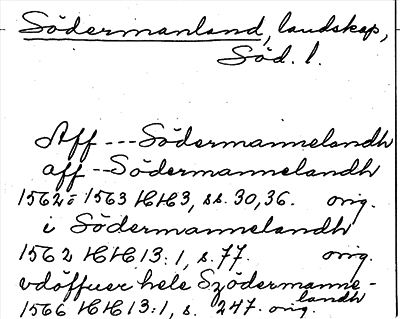 Södermanland, landskap,
Söd. l.
Aff --- Södermannelandh
aff -- Södermannelandh
1562-1563 HH3, ss. 30, 36. orig.
i Södermannelandh
1562 HH13:1, s. 77. orig.
vdöffuer hele Szödermanne-
landh
1566 HH13:1, s. 247. orig.